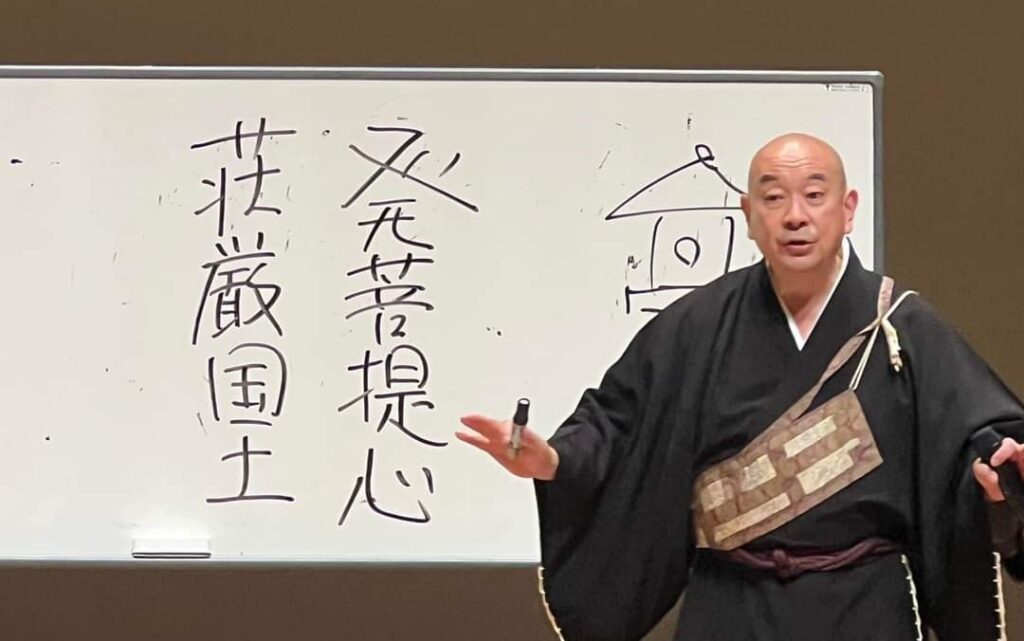 発菩提心
荘厳国土